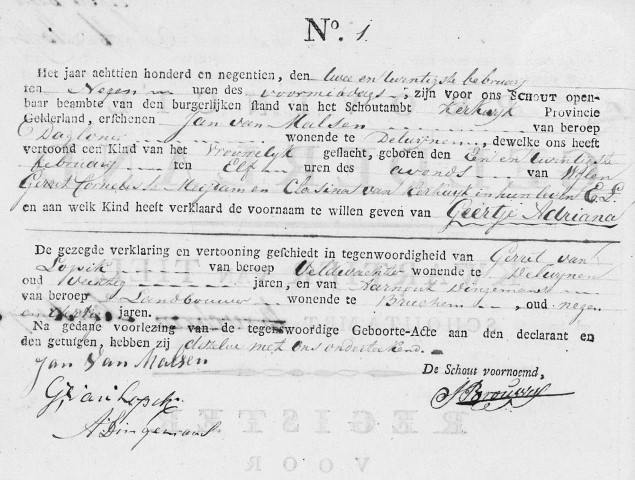 No. 1
Het jaar achttien honderd en negentien, den twee en twentigste februarij
ten Negen uren des voormiddags, zijn voor ons SCHOUT open-
baar beambte van den burgerlijken stand van het Schoutambt Kerkwijk Provincie
Gelderland, erschenen Jan van Malsen van beroep
Daglone wonende te Delwijnen, dewelke ons heeft
vertoond een Kind van het Vrouwelyk geslacht, geboren den Een en twentigste
februarij ten Elf uren des avonds van Wylen
Gerrit Cornelis en Clasina van Kerkwyk in hun leven E. L.
en aan welk Kind heeft verklaard de voornaam te willen geven van Geertje Adriana
De gezegde verklaring en vertooning geschiedt in tegenwoordigheid van Gerrit van
Lopik van beroep Veldwachter wonende te Delwynen
oud jaren, en van Aarnout Dingemans
van beroep Landbouwer wonende te Bruchem, oud negen
jaren.
Na gedane voorlezing van de tegenswoordige Geboorte-Acte aan den declarant en
den getuigen, hebben zij dezelve met ons onderteekend.
Jan Van Malsen
De Schout voornoemd,
G. van Lopik
A Dingemans